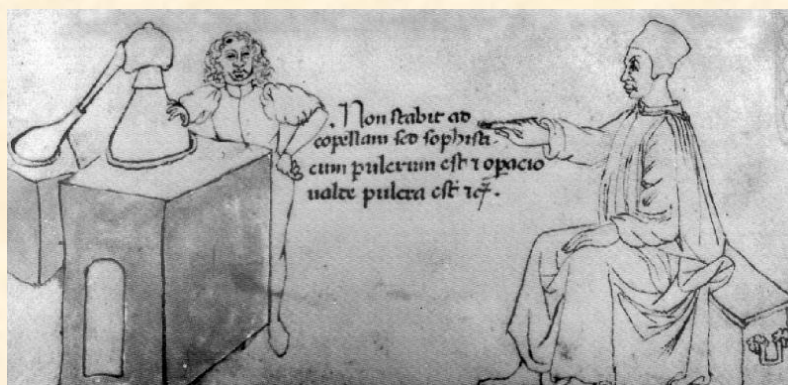 . Non stabit ad
copellam sed sophisti-
cum pulcrum est ⁊ opacio
valde pulcra est ⁊cꝫ.